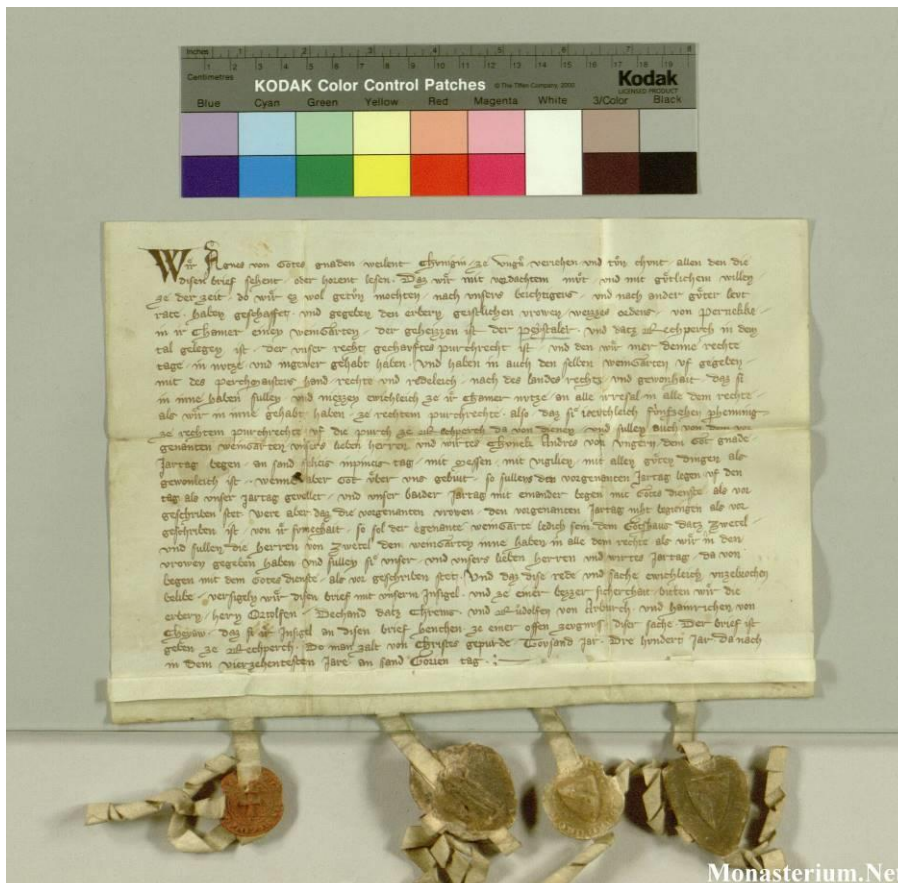 Inches 1 2 3 4 5 6 7 8
Centimetres 1 2 3 4 5 6 7 8 9 10 11 12 13 14 15 16 17 18 19
KODAK Color Control Patches © The Tiffen Company, 2000 Kodak
LICENSED PRODUCT
Blue Cyan Green Yellow Red Magenta White 3/Color Black
Wir Agnes von Gotes gnaden weilent Chunigin ze Ungern verichen und tun chunt allen den die
disen brief sehent oder horent lesen. Daz wir mit verdachtem mut und mit gutlichem willen
ze der zeit do wir ez wol getun mochten nach unsers beichtigers und nach ander guter levt
rate haben geschaffet und gegeben den erbern geistlichen vrowen weizzes ordens von Pernekke
in ir Chamer einen weingarten der geheizzen ist der und datz Rechperch in dem
tal gelegen ist der unser recht purchrecht ist und den wir mer denne rechte
tage in nutze und in gewer gehabt haben Und haben in auch den selben weingarten uf gegeben
mit des perchmaisters hand rechte und redeleich nach des landes recht und gewonhait daz si
in inne haben sullen und niezzen ewichleich ze ir Chamer nutze an alle irresal in alle dem rechte
als wir in inne gehabt haben ze rechtem purchrechte also daz si iaerchleich funfzehen phenning
ze rechtem purchrechte uf die purch ze Rechperch da von dienen und sullen auch von dem vor
genanten weingarten unsers lieben herren und wirtes Chunich Andres von Ungern dem Got gnade
Jartag begen an sand tag mit messen mit vigilien mit allen guten dingen als
gewonleich ist wenne aber Got uber uns gebiut so sullens den vorgenanten Jartag legen uf den
tag als unser Jartag gevellet und unser baider Jartag mit einander begen mit Gotes dienste als vor
geschriben stet were aber daz die vorgenanten vrowen den vorgenanten Jartag niht begiengen als vor
geschriben ist von ir so sol der egenante weingarte ledich sein dem Gotshaus datz Zwetel
und sullen die herren von Zwetel den weingarten inne haben in alle dem rechte als wir in den
vrowen gegeben haben und sullen si unser und unsers lieben herren und wirtes Jartag da von
begen mit dem Gotes dienste als vor geschriben stet Und daz dise rede und sache ewichleich unzebrochen
belibe versigeln wir disen brief mit unserm Insigel und ze einer bezzer sicherhait biten wir die
erbern hern Ortolfen Dechand datz Chrems und Rudolfen von Arburch und Hainrichen von
daz si ir Insigel an disen brief henchen ze einer offen zeugnus diser sache Der brief ist
geben ze Rechperch Do man zalt von Christes gepurde Tousand Jar Dre hundert Jar da nach
in dem vierzehentesten Jare an sand tag
Monasterium.Net